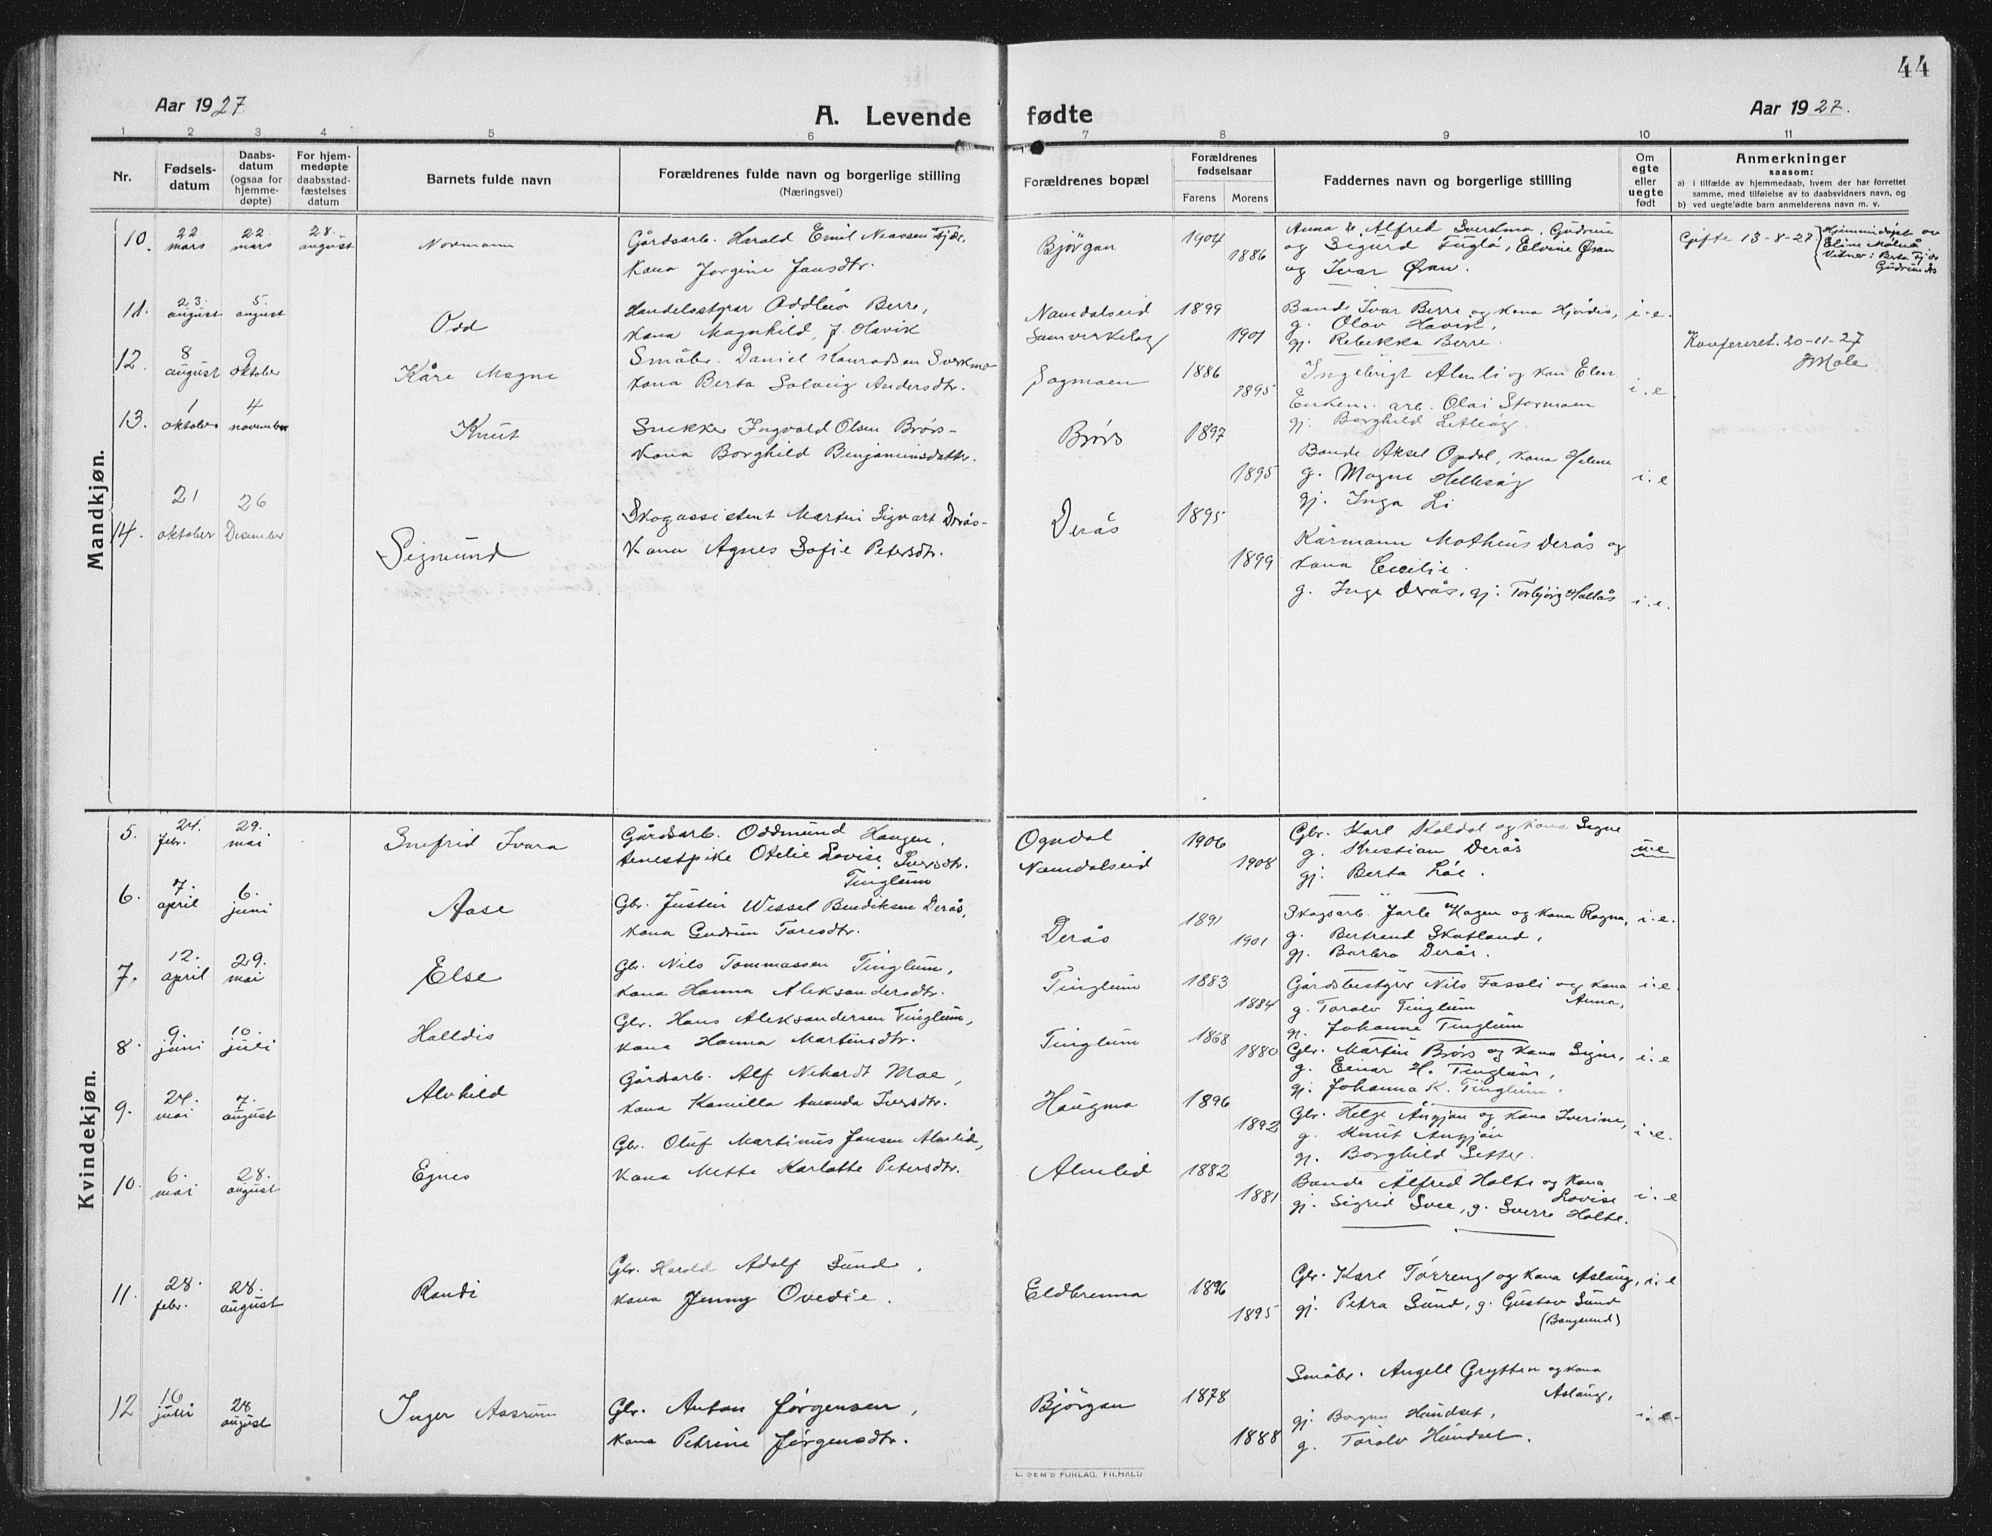 44
Aar 1927
A. Levende fødte
Aar 1927.
1 2 3 4 5 6 7 8 9 10 11
Nr.
Fødsels-
datum
Daabs-
datum
(ogsaa for
hjemme-
døpte)
For hjem-
medøpte
daabsstad-
fæstelses
datum
Barnets fulde navn
Forældrenes fulde navn og borgerlige stilling
(Næringsvei)
Forældrenes bopæl
Forældrenes
fødselsaar
Farens Morens
Faddernes navn og borgerlige stilling
Om
egte
eller
uegte
født
Anmerkninger
saasom:
a) i tilfælde av hjemmedaab, hvem der har forrettet
samme, med tilføielse av to daabsvidners navn, og
b) ved uegte fødte barn anmelderens navn m. v.
Mandkjøn.
10. 22 mars 22 mars 28. august Normann
Gårdsarb. Harald Emil
Kona Jorgine Jansdtr.
Bjørgan 1904 1886
Anna Alfred Gudrun
og Sigurd Fuglå, Elvine Øran
og Ivar Øran.
Gifte 13-8-27
11. 23. august 5. august Odd
Berre,
Kona Magnhild, f. Havik
Namdalseid
Samvirkelag
1899 1901
Bonde Ivar Berre og kona Hjørdis, i.e.
g. Olav Havik,
gj. Rebekka Berre.
Konfereret 20-11-27
12. 8 august 9 oktober Kåre Magne
Småbr. Daniel Konradsen
Kona Berta Solveig Andersdtr.
Sagmoen 1886 1895
Ingebrigt Almli og kon Elen i.e
arb. Olai Stormoen
gj. Borghild
13. 1 oktober 4 november Knut
Snekker Ingvald Olsen Brørs-
Kona Borghild Benjaminsdatter.
Brørs 1897 1895
Bonde Aksel Opdal, kona Helene
g. Magne i.e
gj. Inga Li
14. 21 oktober 26 Desember Sigmund
Skogassistent Martin Sigvart Derås-
Kona Agnes Sofie Petersdtr.
Derås 1895 1899
Kårmann Matheus Derås og
kona Cecilie.
g. Inge Derås, gj: Torbjørg Hallås i.e.
Kvindekjøn.
5. 24. febr. 29. mai Snefrid Ivara
Gårdsarb. Oddmund Haugen,
tenestpike Otelie Lovise Iversdtr.
Tinglum
Ogndal
Namdalseid
1906 1908
Gbr. Karl Kaldal og kona Signe
g. Kristian Derås u.e
gj. Berta
6. 7. april 6. juni Aase
Gbr. Justin Wessel Bendiksen Derås,
kona Gudrun Toresdtr.
Derås 1891 1901
Skogsarb. Jarle Hagen og kona Ragna, i.e.
g. Bertrand Skatland,
gj. Barbra Derås.
7. 12. april 29. mai Else
Gbr. Nils Tommassen Tinglum,
kona Hanna Aleksandersdtr.
Tinglum 1883 1884
Gårdsbestyrer Nils Fassli og kona i.e.
Anna,
g. Toralv Tinglum
gj. Johanne Tinglum
8. 9. juni 10. juli Halldis
Gbr. Hans Aleksandersen Tinglum,
kona Hanna Martinsdtr.
Tinglum 1868 1880
Gbr. Martin Brørs og kona Signe, i.e
g. Einar H. Tinglum,
gj. Johanna K. Tinglum.
9. 24. mai 7. august Alvhild
Gårdsarb. Alf Nihardt Moe,
kona Kamilla Amanda Iversdtr.
Haugmo 1896 1892
Gbr. Helge Ångjan og kona Iverine,
g. Knut Ångjan i.e.
gj. Borghild Setter.
10. 6. mai 28. august Egnes
Gbr. Oluf Martinus Jansen Almlid,
kona Mette Karlotte Petersdtr.
Almlid 1882 1881
Bonde Alfred Holte og kona
Lovise i.e
gj. Sigrid Svee, g. Sverre Holte.
11. 28. febr. 28. august Randi
Gbr. Harald Adolf Sund,
kona Jenny Ovedie.
Eldbrenna 1896 1895
Gbr. Karl Tørreng og kona Aslaug, i.e
gj. Petra Sund, g. Gustav Sund
(Bangsund)
12 16 juli 28 august Inger Aasrun
Gbr. Anton Jørgensen,
kona Petrine Jørgensdtr.
Bjørgan 1878 1888
Småbr. Angell Grytten og kona
Aslaug,
gj. Borgny Hundset, i.e.
g. Toralv Hundset.